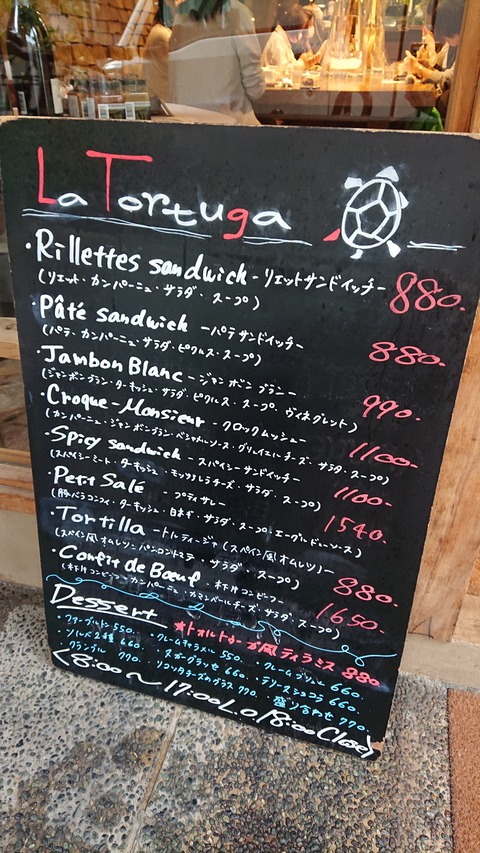 La Tortuga
・Rillettes sandwich - リエットサンドイッチー 880.
(リエット・カンパーニュ・サラダ・スープ)
・Pâté sandwich - パテサンドイッチー 880.
(パテ・カンパーニュ・サラダ・ピクルス・スープ)
・Jambon Blanc - ジャンボンブランー 990.
(ジャンボンブラン・ターキッシュ・サラダ・ピクルス・スープ、ヴィネグレット)
・Croque-Monsieur - クロックムッシュー 1100.
(カンパーニュ・ジャンボンブラン・ベシャメルソース・グリュイエールチーズ・サラダ・スープ)
・Spicy sandwich - スパイシーサンドイッチー 1100.
(スパイシーミート・ターキッシュ・モッツァレラチーズ・サラダ・スープ)
・Petit Salé - プティサレー 1540.
(豚バラコンフィ・ターキッシュ・白ネギ・サラダ・スープ)
・Tortilla - トルティージャ (スペイン風オムレツ)ー 880.
(スペイン風オムレツ・パンコントマテ・サラダ・スープ)
・Confit de Bœuf - ホホ肉コンビーフー 1650.
(ホホ肉コンビーフ・カンパーニュ・カマンベールチーズ・サラダ・スープ)
Dessert ★トォルトゥーガ風ティラミス 880.
・ファーブルトン 550. ・クレームキャラメル 550. ・クレームブリュレ 660.
・ソルベ2種 660. ・スガーグラッセ 660. ・テリーヌショコラ 660.
・クランブル 770. ・リコッタチーズのグラス 770. 盛り合わせ 770.
<8:00~17:00 L.o 18:00 Close>